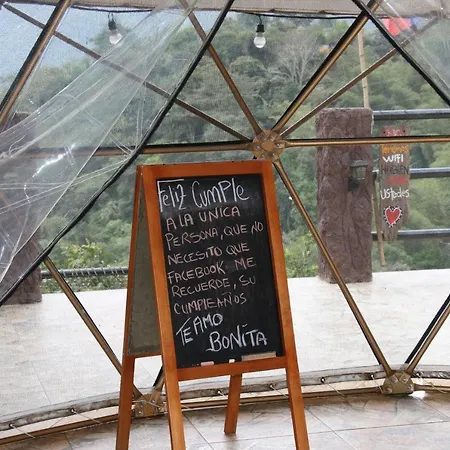 FELIZ CUMPLE
A LA UNICA
PERSONA, QUE NO
NECESITO QUE
FACEBOOK ME
RECUERDE, SU
CUMPLEAÑOS
TE AMO
BONITA
WIFI